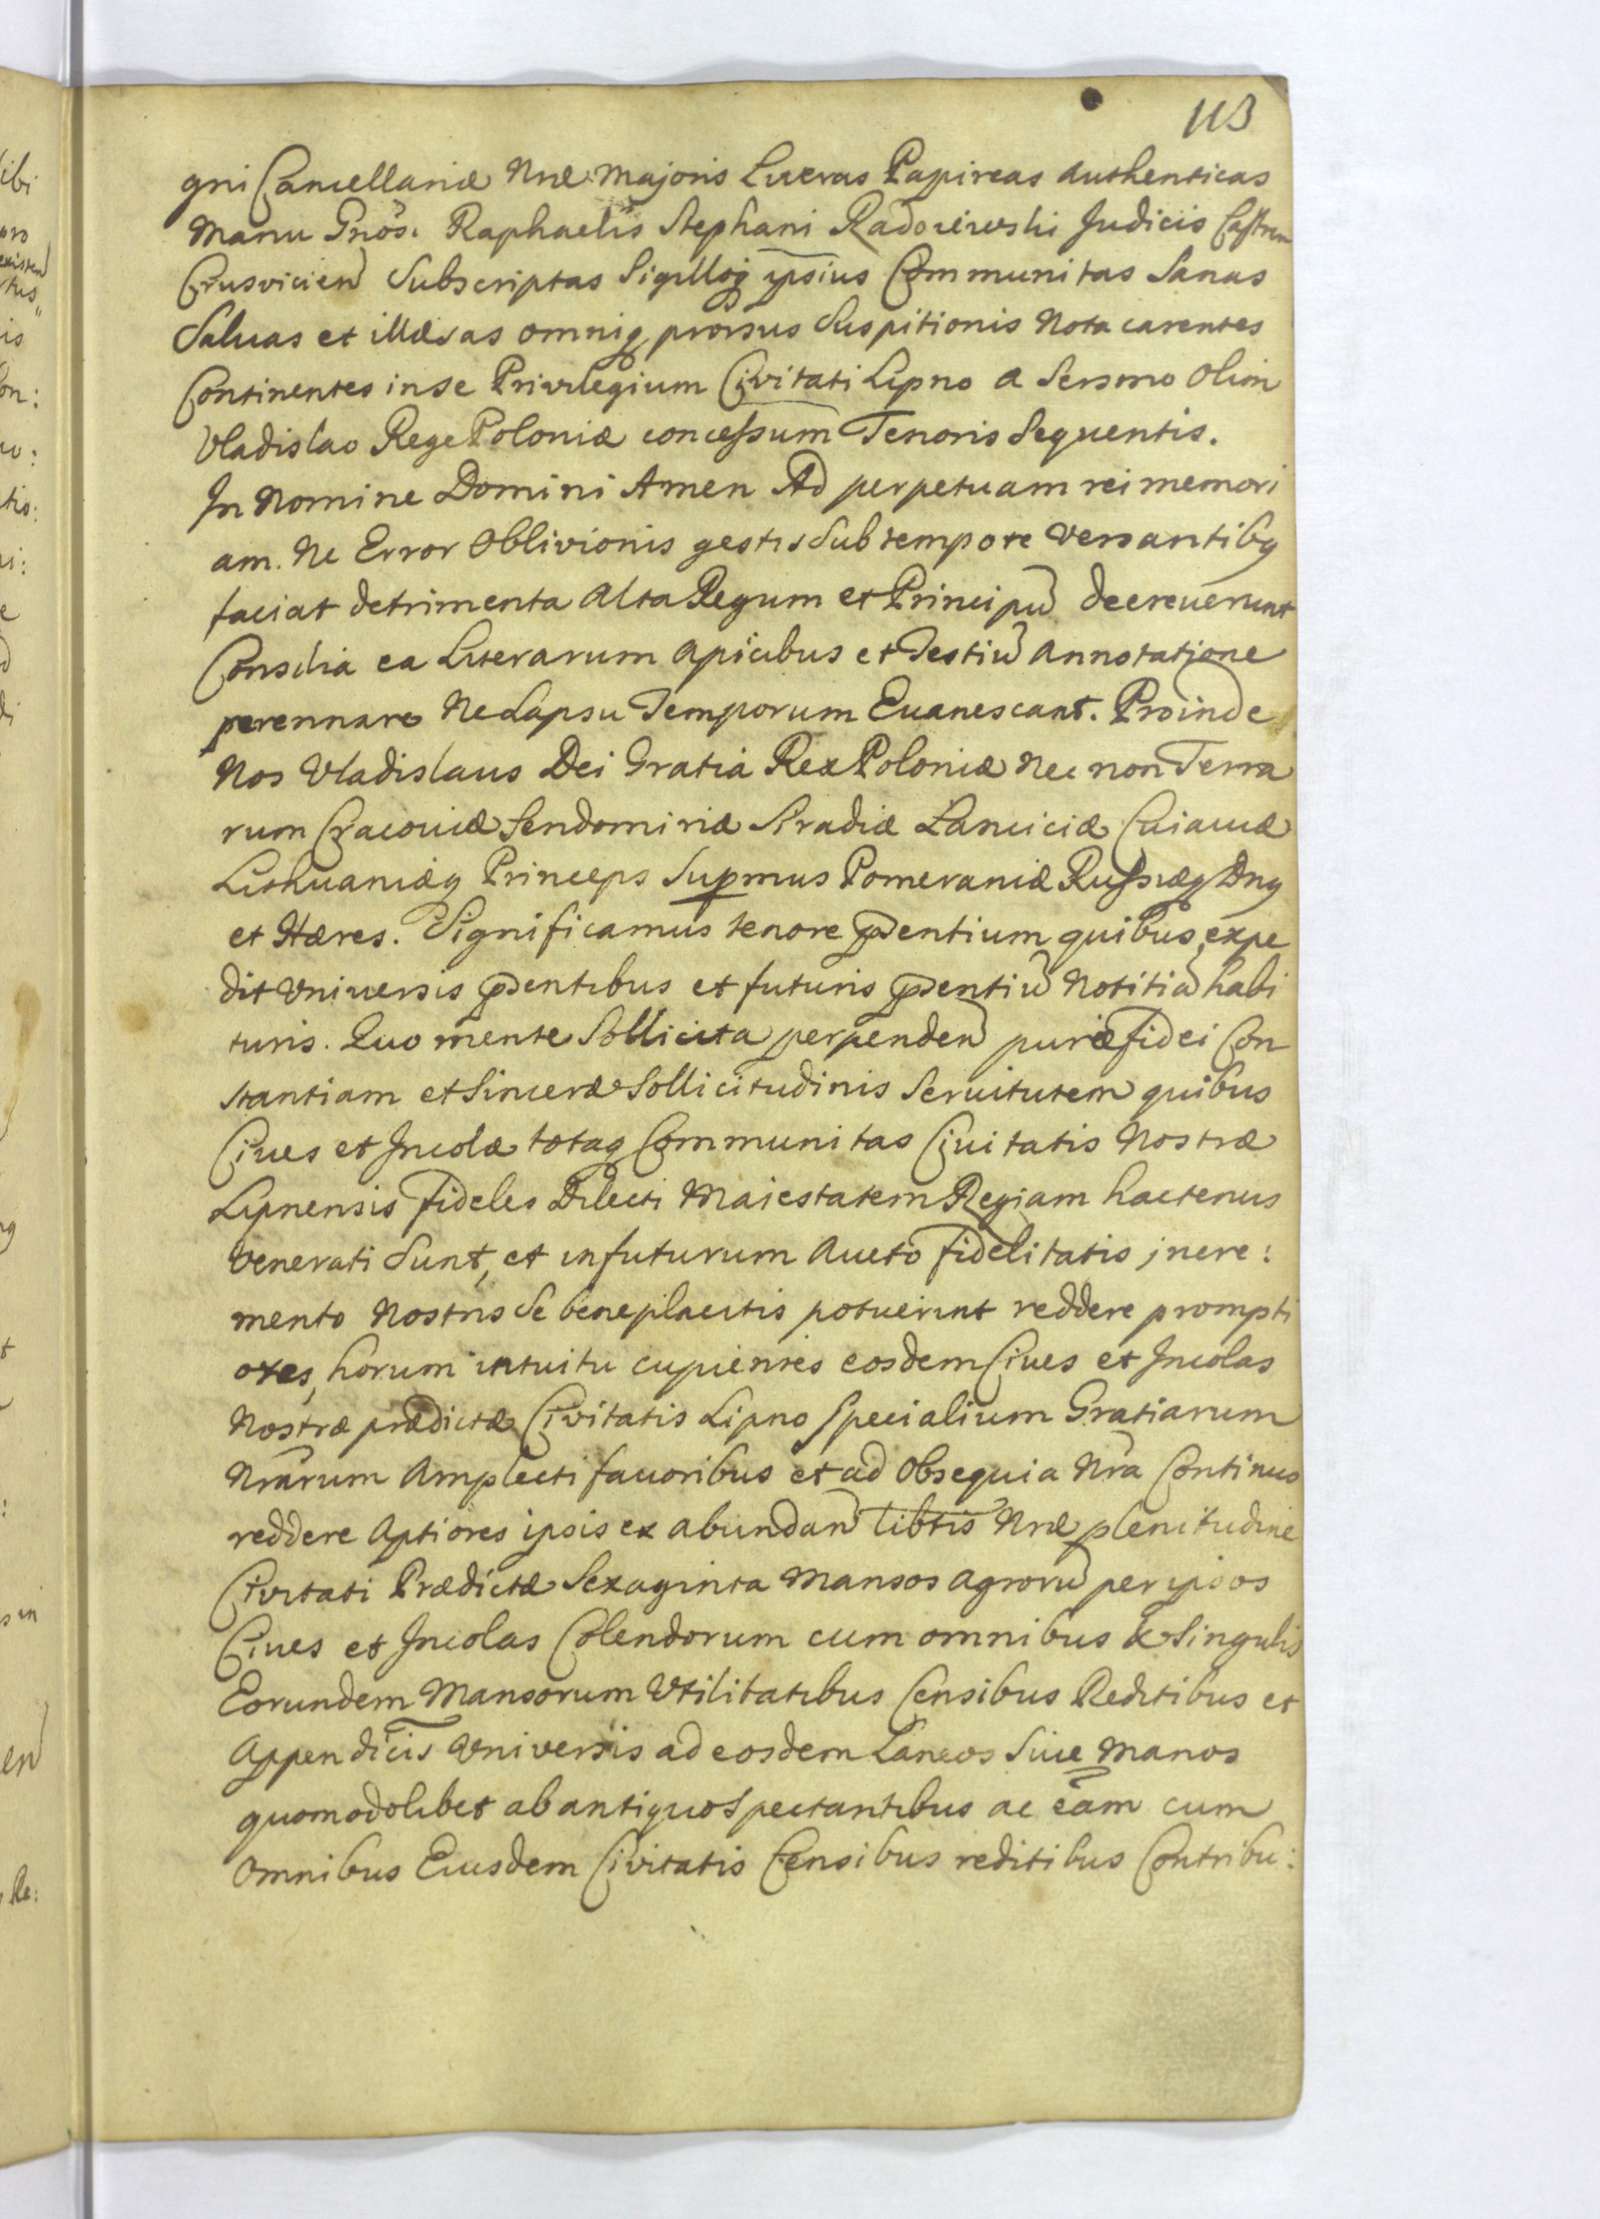 113
gni Cancellariæ Nræ Majoris Literas Papireas Authenticas
Manu Gnōsi Raphaelis Stephani Radoiewski Judicis Castren
Crusvicien Subscriptas Sigilloq ipsius Communitas Sanas
Saluas et illæsas omniq prorsus Suspitionis Nota carentes
Continentes in se Privilegium Civitati Lipno a Sersmo olim
Vladislao Rege Poloniæ concessum Tenoris Sequentis.
In Nomine Domini Amen Ad perpetuam rei memori
am. Ne Error Oblivionis gestis Sub tempore Versantibq
faciat detrimenta Alta Regum et Principū decreuerunt
Consilia ea Literarum Apicibus et Testiū Annotatione
perennare Ne Lapsu Temporum Euanescant. Proinde
Nos Vladislaus Dei Gratia Rex Poloniæ Nec non Terra
rum Cracouiæ Sendomiriæ Siradiæ Lanciciæ Cuiauiæ
Lithuaniæq Princeps Supmus Pomeraniæ Russiæq Dnq
et Hæres. Significamus tenore pñentium quibus expe
dit Vniuersis pñentibus et futuris pñentiū Notitiā habi
turis. Quo mente Sollicita perpenden puræ fidei Con
stantiam et Sinceræ Sollicitudinis Seruitutem quibus
Ciues et Incolæ totaq Communitas Ciuitatis Nostræ
Lipnensis fideles Dilecti Maiestatem Regiam hactenus
Venerati Sunt, et in futurum Aucto fidelitatis incre:
mento Nostris Se beneplacitis potuerint reddere prompti
ores, horum intuitu cupientes eosdem Ciues et Incolas
Nostræ prædictæ Civitatis Lipno Specialium Gratiarum
Nrārum Amplecti fauoribus et ad Obsequia Nrā Continuo
reddere Aptiores ipsis ex abundan libtis Nræ plenitudine
Civitati Prædictæ Sexaginta Mansos Agrorū per ipsos
Ciues et Incolas Colendorum cum omnibus & Singulis
Eorundem Mansorum Vtilitatibus Censibus Reditibus et
Appendicis Vniversis ad eosdem Laneos Siue Manos
quomodolibet ab antiquo Spectantibus ac eām cum
Omnibus Eiusdem Civitatis Censibus reditibus Contribu: